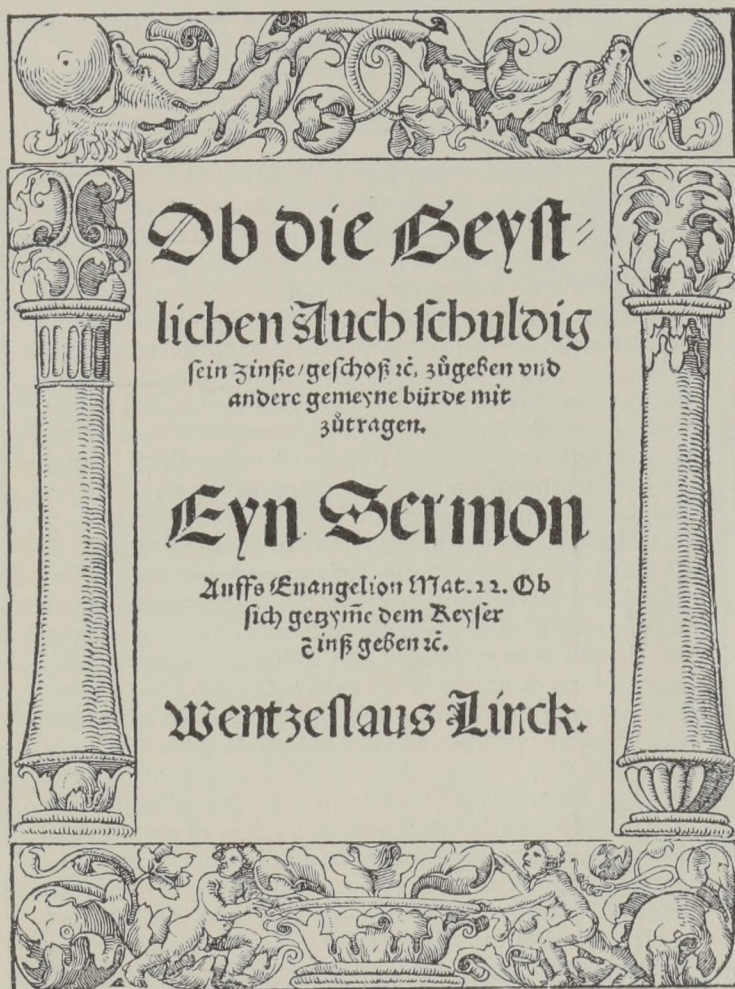 Ob die Geyst⸗
lichen Auch schuldig
sein zinße/geschoß ꝛc̄. zůgeben vnd
andere gemeyne bürde mit
zůtragen.
Eyn Sermon
Auffs Euangelion Mat.22. Ob
sich getzym̄e dem Keyser
Zinß geben ꝛc̄.
Wentzeslaus Linck.